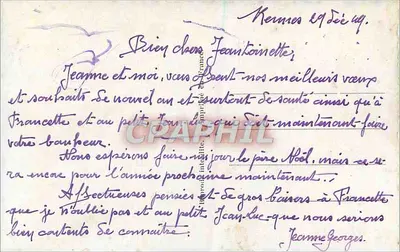 Rennes 29 Déc 49.
Bien chère Jeantoinette,
Jeanne et moi, vous offrent nos meilleurs vœux
et souhaits de nouvel an et surtout de santé ainsi qu'à
Francette et au petit Jean-Luc qui doit maintenant faire
votre bonheur.
Nous espérons faire un jour le père Noël, mais ce se-
ra encore pour l'année prochaine maintenant...
Affectueuses pensées et de gros baisers à Francette
que je n'oublie pas et au petit Jean-Luc que nous serions
bien contents de connaître.
Jeanne Georges.
CPAPHIL